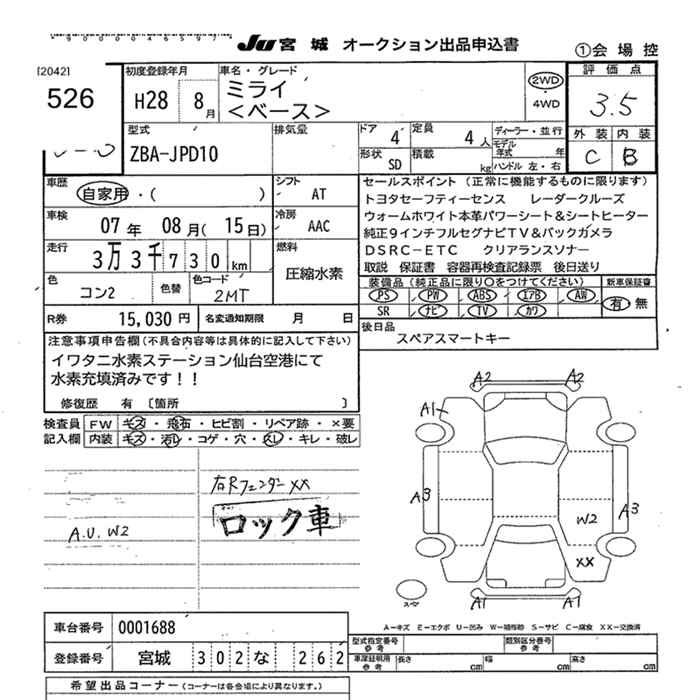 Ju 宮城 オークション出品申込書
①会場控
[2042]
526
初度登録年月
H28 8月
車名・グレード
ミライ
<ベース>
2WD
・
4WD
評価点
3.5
外装 内装
C B
型式
ZBA-JPD10
排気量
ドア 4
定員 4人
ディーラー・並行
モデル年式 年
形状 SD
積載 kg
ハンドル 左・右
車歴
自家用・( )
シフト
AT
車検
07年 08月(15日)
冷房
AAC
走行
3万3千730km
燃料
圧縮水素
色
コン2
色替
色コード
2MT
R券 15,030円
名変通知期限 月 日
セールスポイント(正常に機能するものに限ります)
トヨタセーフティーセンス レーダークルーズ
ウォームホワイト本革パワーシート&シートヒーター
純正9インチフルセグナビTV&バックカメラ
DSRC-ETC クリアランスソナー
取説 保証書 容器再検査記録票 後日送り
装備品(純正品に限り○をつけてください)
新車保証書
PS PW ABS エアB AW
SR ナビ TV カワ
有 無
後日品
スペアスマートキー
注意事項申告欄(不具合内容等は具体的に記入して下さい)
イワタニ水素ステーション仙台空港にて
水素充填済みです!!
修復歴 有〔箇所 〕
検査員記入欄
FW キズ・飛石・ヒビ割・リペア跡・×要
内装 キズ・汚レ・コゲ・穴・スレ・キレ・破レ
右Rフェンダー XX
ロック車
A.U. W2
A2 A2
A1
A3 A3
W2
XX
A1 A1
スペア
A-キズ E-エクボ U-凹み W-補修跡 S-サビ C-腐食 XX-交換済
車台番号 0001688
登録番号 宮城 302 な 262
型式指定番号 参考
類別区分番号 参考
車庫証明用 参考 長さ 幅 高さ cm
希望出品コーナー(コーナーは各会場により異なります。)